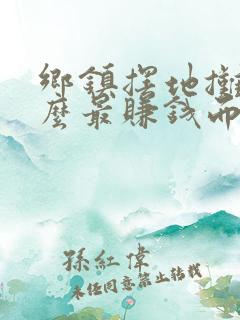 鄉鎮擺地攤
麼最賺錢而
孫紅偉
未经同意禁止转载